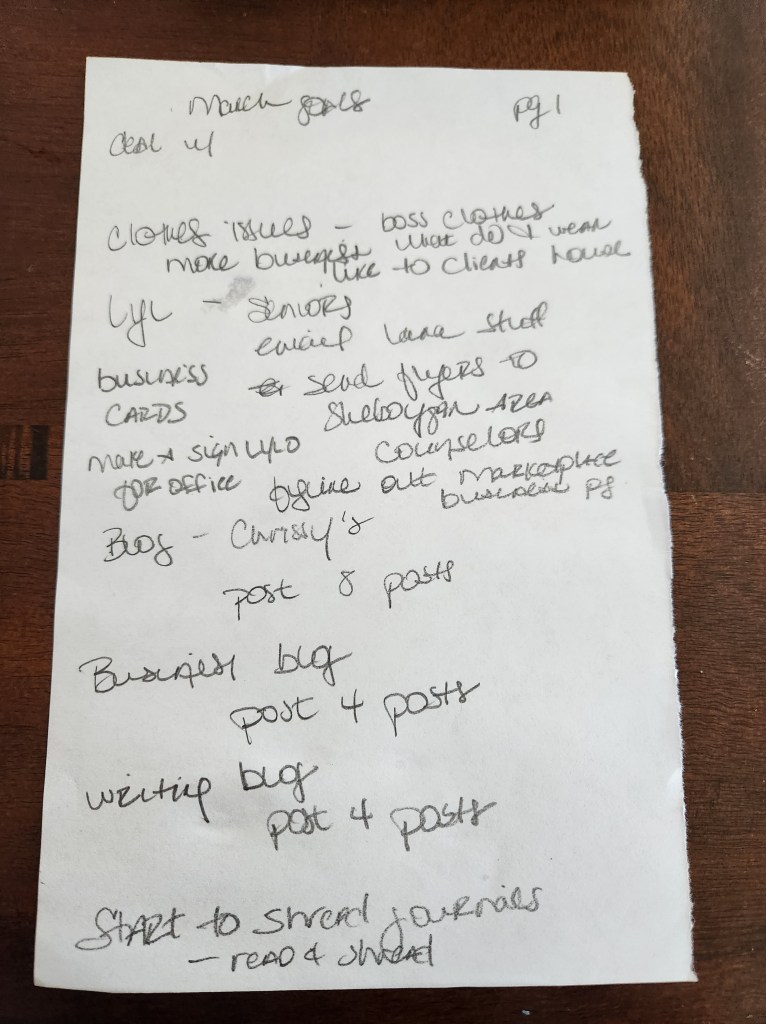 March goals pg 1
Deal w/
Clothes issues - boss clothes
more business what do I wear
like to clients house
LYL - Seniors
email Lana stuff
business send flyers to
CARDS Sheboygan AREA
make + sign up Counselors
FOR OFFICE figure out marketplace
business pg
Blog - Chrissy's
post 8 posts
Business blog
post 4 posts
writing blog
post 4 posts
START to shread journals
- read & shread